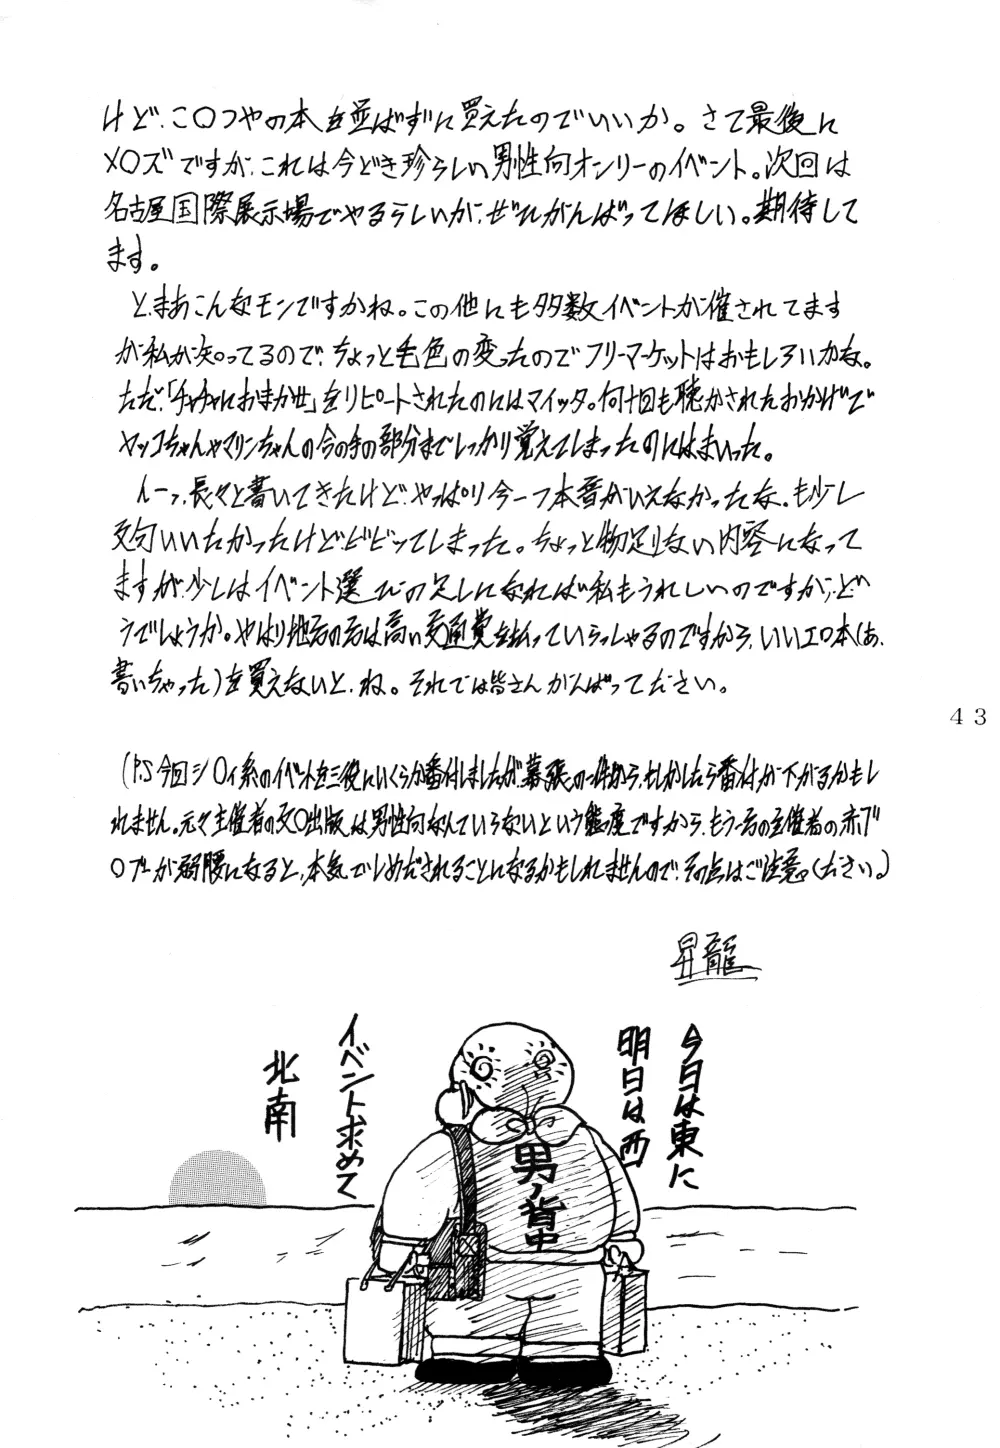 けど、こ〇つやの本を並ばずに買えたのでいいか。さて最後に
メ〇ズですが、これは今どき珍らしい男性向オンリーのイベント。次回は
名古屋国際展示場でやるらしいが、ぜひがんばってほしい。期待して
ます。
と、まあこんなモンですかね。この他にも多数イベントが催されてます
が私が知ってるので、ちょっと毛色の変ったのでフリーマーケットはおもしろいかな。
ただ「チャチャにおまかせ」をリピートされたのにはマイッタ。何十回も聴かされたおかげで
ヤッコちゃんやマリンちゃんの合の手の部分までしっかり覚えてしまったのにはまいった。
んーっ、長々と書いてきたけど、やっぱり今一つ本音がいえなかったな。も少し
文句いいたかったけどビビッてしまった。ちょっと物足りない内容になって
ますが、少しはイベント選びの足しになれば私もうれしいのですが、ど
うでしょうか。やはり地元の方は高い交通費を払っていらっしゃるのですから、いいエロ本(あ、
書いちゃった)を買えないと、ね。それでは皆さんがんばってください。
(P.S 今回シ〇ィ系のイベントを三役にいくらか番付しましたが、幕張の一件から、もしかしたら番付が下がるかもし
れません。元々主催者の文〇出版は男性向なんていらないという態度ですから、もう一方の主催者の赤ブ
〇ブーが弱腰になると、本気でしめだされることになるかもしれませんので、その点はご注意ください。)
昇龍
今日は東に
明日は西
イベント求めて
北南
男ノ背中
43